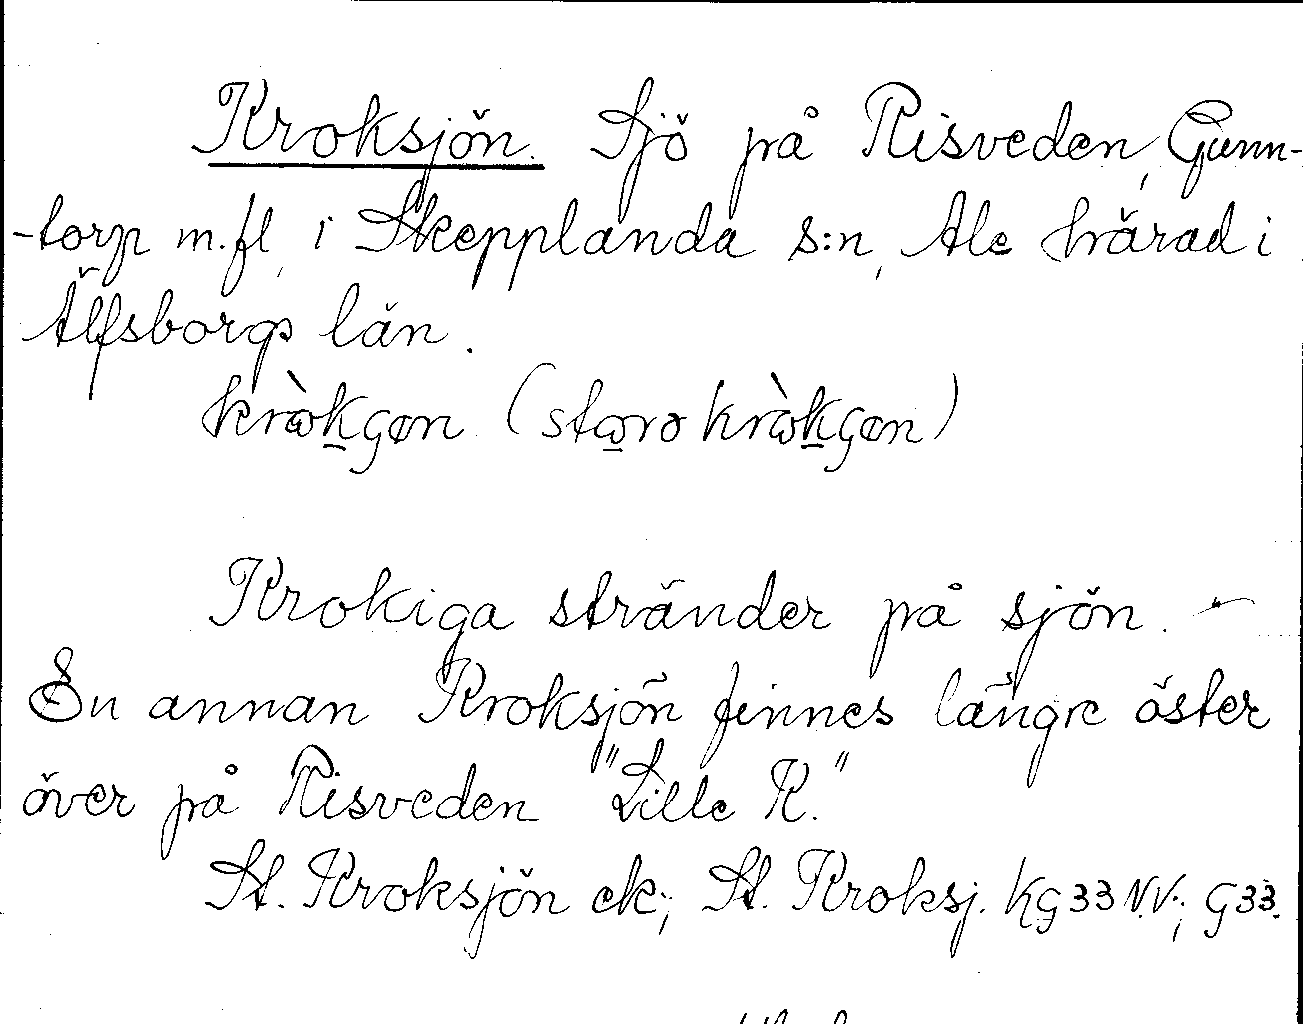 Kroksjön. Sjö på Risveden, Gunn-
-torp m.fl, i Skepplanda s:n, Ale härad i
Älfsborgs län.
krὼkʃøn (stωrə krὼkʃøn)
Krokiga stränder på sjön. –
En annan Kroksjön finnes längre öster
över på Risveden "Lille K."
St. Kroksjön ek; St. Kroksj. KG 33 N.V.; G 33.